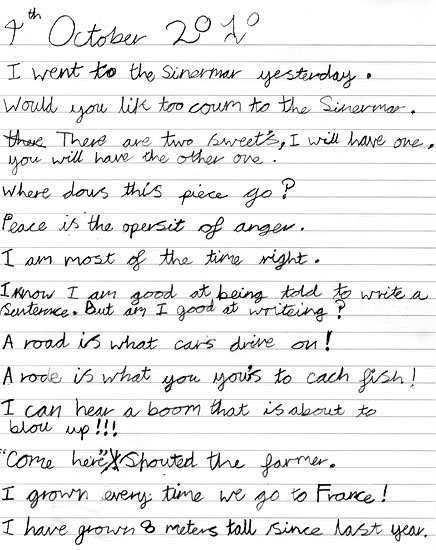 4th October 2010
I went to the Sinermar yesterday.
Would you lik too coum to the Sinermar.
there There are two sweet's, I will have one,
you will have the other one.
Where dous this piece go?
Peace is the opersit of anger.
I am most of the time right.
I know I am good at being told to write a
sentence. But am I good at writeing?
A road is what cars drive on!
A rode is what you yous to cach fish!
I can hear a boom that is about to
blow up!!!
"Come here", Shouted the farmer.
I grown every time we go to France!
I have grown 8 meters tall since last year.